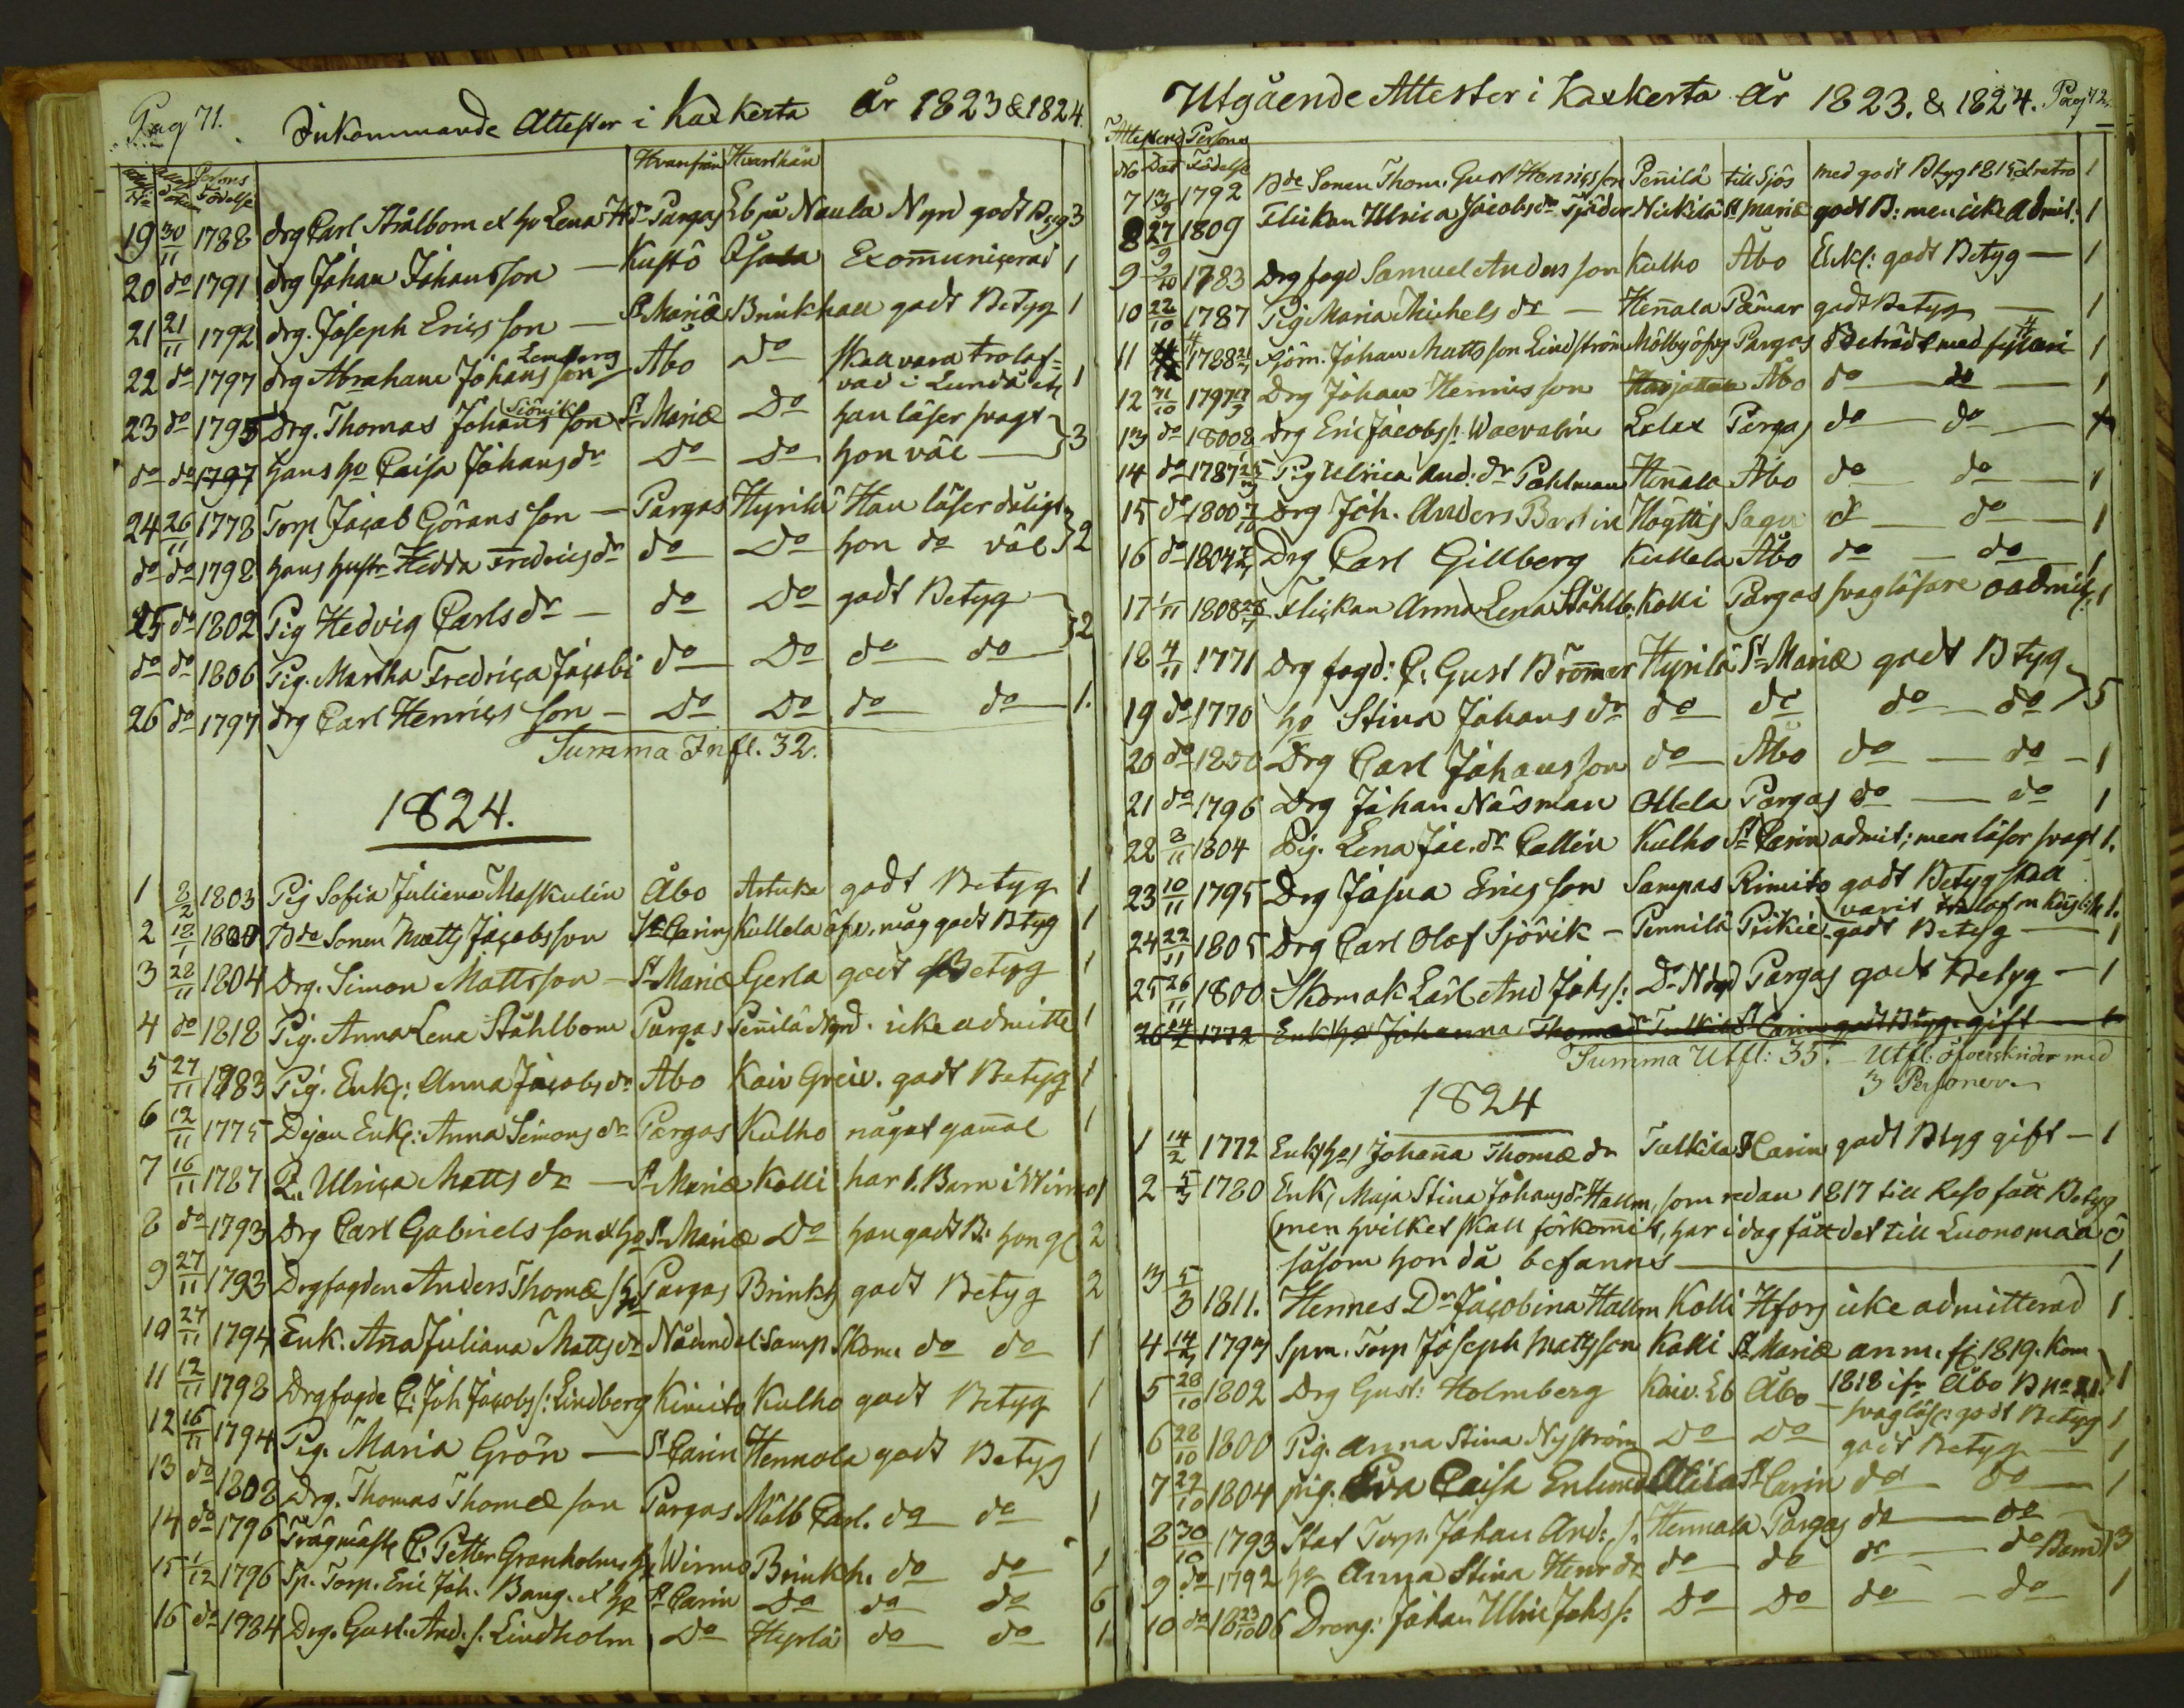 Pag 71.
Inkommande Attester i Kakskerta År 1823 & 1824.
Attest No Attest Datum Persons Födelse Hvarifrån Hvarthän
19 30/11 1788 Drg Carl Strålbom & ho Lena H dr Pargas Eb på Naula Nyrd godt Btyg 3
20 do 1791 drg Johan Johansson — Kustö Exommunicerad 1
21 21/11 1792 drg. Joseph Ericsson — St Mariæ Brinkhall godt Betyg 1
22 do 1797 drg Abraham Johansson Lemberg Åbo Do skall vara trolof=
vad i Lunda 1
23 do 1795 Drg. Thomas Johansson Siövik St Mariæ Do han läser svagt
do do 1797 hans ho Caisa Johansdr Do Do hon väl — 3
24 26/11 1778 Torp. Jacob Göransson — Pargas Hyrilä Han läser dåligt
do do 1798 hans hustr Hedda Fredricsdr do Do hon do väl 2
25 do 1802 Pig Hedvig Carlsdr — do Do godt Betyg
do do 1806 Pig. Martha Fredrica Jacobi do Do do do 2
26 do 1797 drg Carl Henricsson — Do Do do do 1.
Summa Infl. 32.
1824.
1 3/2 1803 Pig Sofia Juliana Maskulin Åbo Artuka godt Betyg 1
2 18/1 Bde Sonen Matts Jacobsson St Carins Kullela öfv. måg godt Btyg 1
3 28/11 1804 Drg. Simon Mattsson — St Mariæ Gerla godt Betyg 1
4 do 1818 Pig. Anna Lena Ståhlbom Pargas Pennilä Nyrd. icke admitte 1
5 27/11 1783 Pig. Enk: Anna Jacobsdr Åbo Koiv Greiv. godt Betyg 1
6 12/11 1775 Dejan Enk: Anna Simonsdr Pargas Kulho något gammal 1
7 16/11 1787 Q. Ulrica Mattsdr — St Mariæ Kolli har 1. Barn i Wirmo 1
8 do 1793 Drg Carl Gabrielsson & ho St Mariæ Do han godt B: hon gl 2
9 27/11 1793 Drgfogden Anders Thomæ s. ho Pargas Brinkh godt Betyg 2
10 27/11 1794 Enk. Anna Juliana Mattsdr Nådendal Samp. Skom do do 1
11 12/11 1798 Drgfogde C: Joh Jacobs: Lindberg Kimito Kulho godt Betyg 1
12 16/11 1794 Pig. Maria Grön — St Carin Hennola godt Betyg 1
13 do 1808 Drg. Thomas Thomæson Pargas Mölb Carl. do do 1
14 do 1796 Trägmäst C: Petter Granholm ho Wirmo Brinkh. do do 1
15 1/12 1796 Sp. Torp. Eric Joh. Bang. & ho St Carin Do do do 6
16 do Drg. Gust. And. s. Lindholm Do Hyrlä do do 1
Utgående Attester i Kakskerta År 1823. & 1824. Pag 72.
Attestens Persons
No Dat Födelse
7 13/9 1792 Bde Sonen Thom. Gust Henricsson Pennilä till Sjös med godt Btyg 1815 et retro 1
8 27/9 1809 Flickan Ulrica Jacobsdr Sjöder Nickilä St Mariæ godt B: men icke admit: 1
9 9/10 1783 Drgfogd Samuel Andersson Kulho Åbo Enkl: godt Betyg — 1
10 22/10 1787 Pig Maria Michelsdr — Hennala Pämar godt Betyg — 1
11 1788 Sjöm. Johan Mattsson Lindström Mölby öfvg Pargas Beträdt med fylleri 1
12 31/10 1797 Drg Johan Hennisson Harjattula Åbo do do — 1
13 do 1800 Drg Eric Jacobs: Waevalin Lalax Pargas do do
14 do 1787 Pig Ulrica And. dr Pahlman Hennala Åbo do do 1
15 do 1800 Drg Joh. Anders Bastin Högttis Sagu do do — 1
16 do 1804 Drg Carl Gillberg Kullela Åbo do do 1
17 1/11 1808 Flickan Anna Lena Ståhlb: Kolli Pargas svagläsare oadmit: 1
18 4/11 1771 Drg fogd: C. Gust Brömar Hyrilä St Mariæ godt Btyg
19 do 1770 ho Stina Johansdr do do do do 5
20 do 1800 Drg Carl Johansson do Åbo do do — 1
21 do 1796 Drg Johan Näsman Ollela Pargas do do 1
22 3/11 1804 Pig. Lena Jac. dr Callin Kulho St Carin admit; men läser svagt 1.
23 10/11 1795 Drg Josua Ericsson Sampas Rimito godt Betyg skall
varit trolof m 1.
24 22/11 1805 Drg Carl Olof Sjövik — Pennilä Piikie godt Betyg — 1
25 26/11 1800 Skomak Lärl And Johs: Do Ndgd Pargas godt Betyg — 1
26 14/2 1772 Enk ho Johanna Thomædr Tulkila St Carin godt Btyg gift
Summa Utfl: 35. Utfl: öfverskrider med
3 Personer
1824
1 14/2 1772 Enk ho Johanna Thomædr Tulkila St Carin godt Btyg gift — 1
2 5/3 1780 Enk, Maja Stina Johansdr Hallm, som redan 1817 till Reso fått Betyg
(men hvilket skall förkommit, har i dag fått det till Luonomaa ö
såsom hon då befanns — 1
3 5/3 1811. Hennes Dr Jacobina Hallm Kolli Hfors icke admitterad 1
4 14/3 1793 Spm. Torp Joseph Mattsson Kolli St Mariæ anm. fl 1819. kom
1818 ifr Åbo B No 21. 1
5 28/10 1802 Drg Gust: Holmberg Koiv. Eb Åbo svagläs: godt Betyg 1
6 28/10 1800 Pig. Anna Stina Nyström Do Do godt Betyg — 1
7 29/10 1804 pig. Eva Caisa Enlund Alila St Carin do do — 1
8 30/10 1793 Stat Torp. Johan And: s. Hennala Pargas do do
9 do 1792 ho Anna Stina Henr dr do do do do Barn 3
10 do 1806 23/10 Dreng: Johan Ulric Johs: Do Do do — do 1